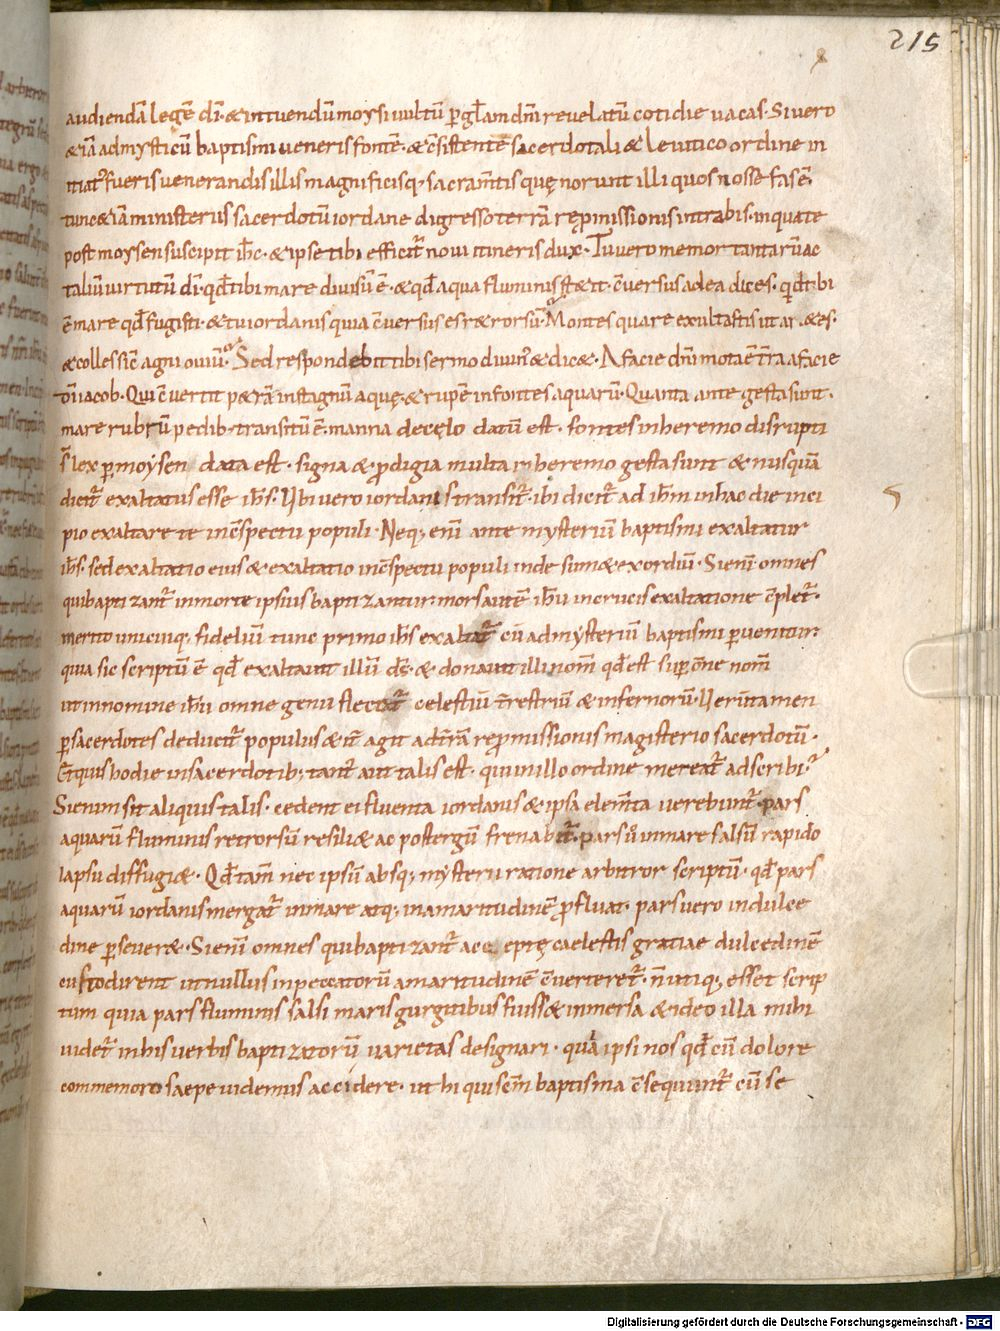 215
audiendā legē dī · & intuendū moysi uultū p gl̄am dn̄i reuelatū cotidie uacas · Si uero
& iā ad mysticū baptismi ueneris fontē · & c̄sistentē sacerdotali & leuitico ordine in
itiat᾿ fueris uenerandis illis magnificisq; sacram̄tis quę norunt illi quos nosse fas ē,
tunc & iā ministeriis sacerdotū iordane digresso terrā rep̱missionis intrabis · in qua te
post moysen suscipit ih̄c · & ipse tibi efficit᷑ noui itineris dux · Tu uero memor tantarū ac
taliū uirtutū dī · qd̄ tibi mare diuisū ē · & qd̄ aqua fluminis st&it · c̄uersus ad ea dices · qid tibi
ē mare qd̄ fugisti · & tu iordanis quia c̄uersus es r&rorsū · Montes quare exultastis ut ari&es ·
& colles sic̄ agni ouiū · Sed respondebit tibi sermo diuin᾿ & dic& · A facie dn̄i mota ē t̄ra a facie
dī iacob · Qui c̄uertit p&rā in stagnū aquę · & rupē in fontes aquarū · Quanta ante gesta sunt ·
mare rubrū pedib; transitū ē · manna de cęlo datū est · fontes in heremo disrupti
s̄ lex p̱ moysen data est · signa & p̱digia multa in heremo gesta sunt & nusquā
dicit᷑ exaltatus esse ih̄s · Ubi uero iordanis transit᷑ · ibi dicit᷑ ad ih̄m in hac die inci
pio exaltare te in c̄spectu populi · Neq; enī ante mysteriū baptismi exaltatur
ih̄s · sed exaltatio eius & exaltatio in c̄spectu populi inde sum& exordiū · Si enī omnes
qui baptizant᷑ in morte ipsius baptizantur · mors autē ih̄u in crucis exaltatione c̄plet᷑ ·
merito unicuiq; fideliū tunc primo ih̄s exaltat᷑ cū ad mysteriū baptismi p̱uenitur
quia sic scriptū ē qd̄ exaltauit illū d̄s · & donauit illi nom̄ qd̄ est sup̱ om̄e nom̄
ut in nomine ih̄u omne genu flectat᷑ celestiū t̄restriū & infernorū · Uerūtamen
p̱ sacerdotes deducit᷑ populus & it̄ agit ad t̄rā rep̱missionis magisterio sacerdotū ·
Et quis hodie in sacerdotib; tant᷑ aut talis est · qui in illo ordine mereat᷑ adscribi ?
Si enim sit aliquis talis · cedent ei fluenta iordanis & ipsa elem̄ta uerebunt᷑ · pars
aquarū fluminis retrorsū resili& ac post tergū frenabit᷑ · pars ů in mare salsū rapido
lapsu diffugi& · Qd̄ tam̄ nec ipsū absq; mysterii ratione arbitror scriptū · qd̄ pars
aquarū iordanis mergat᷑ in mare atq; in amaritudinē p̱fluat · pars uero in dulce
dine p̱seuer& · Si enī omnes qui baptizant᷑ acceptę caelestis gratiae dulcedinē
custodirent ut nullus in peccatorū amaritudinē c̄uerteret᷑ · n̄ utiq; esset scrip
tum quia pars fluminis salsi maris gurgitibus fuiss& inmersa & ideo illa mihi
uidet᷑ in his uerbis baptizatorū uarietas designari · quā ipsi nos qd̄ cū dolore
commemoro saepe uidemus accidere · ut hi qui sc̄m baptisma c̄sequunt᷑ cū se
Digitalisierung gefördert durch die Deutsche Forschungsgemeinschaft - DFG